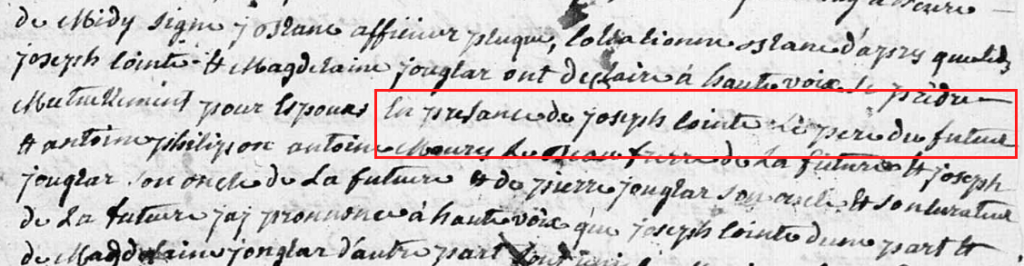 de Midy signe j ostanc affiever pluque, Collationne ostanc d'apres quelid
joseph Cointe & Magdelaine jouglar ont declaire à haute voix se prèdre
Mutuellement pour Espouas En presance de joseph Cointe Le pere du futeur
& antoine philipon antoine Maurez Le Beau frerre de La future & joseph
jouglar son oncle de La future & de pierre jouglar son oncle & son curateur
de La future jaÿ prononce à haute voix que joseph Cointe dune part &
de Magdelaine jouglar d'autre part sont